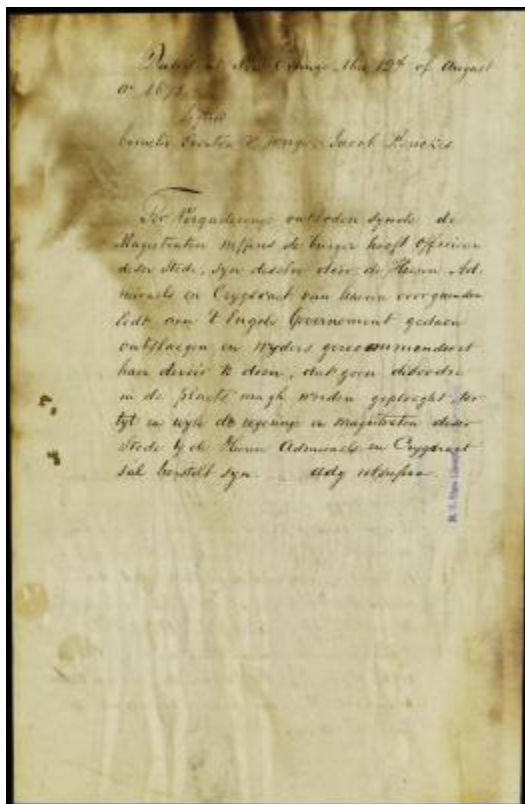 Dated at New Orange this 12th of August
Ao 1673.
Signed
Cornelis Evertse de Jonge. Jacob Benckes.
Ter Vergaderinge ontboden synde de
Magistraten neffens de burger hooft officieren
deser Stede, syn deselve door de Heeren Ad-
miraels en Crygsraet van haeren voorgaenden
Eedt aen 't Engels Governement gedaen
ontslaegen en wyders gerecommandeert
haer devoir te doen, dat geen disordre
in de plaets magh worden gepleeght, ter
tyt en wyle de regeringe en magistraten deser
Stede by de Heeren Admiraels en Crygsraet
sal herstelt syn. Ady utsupra.
N. Y. State Library